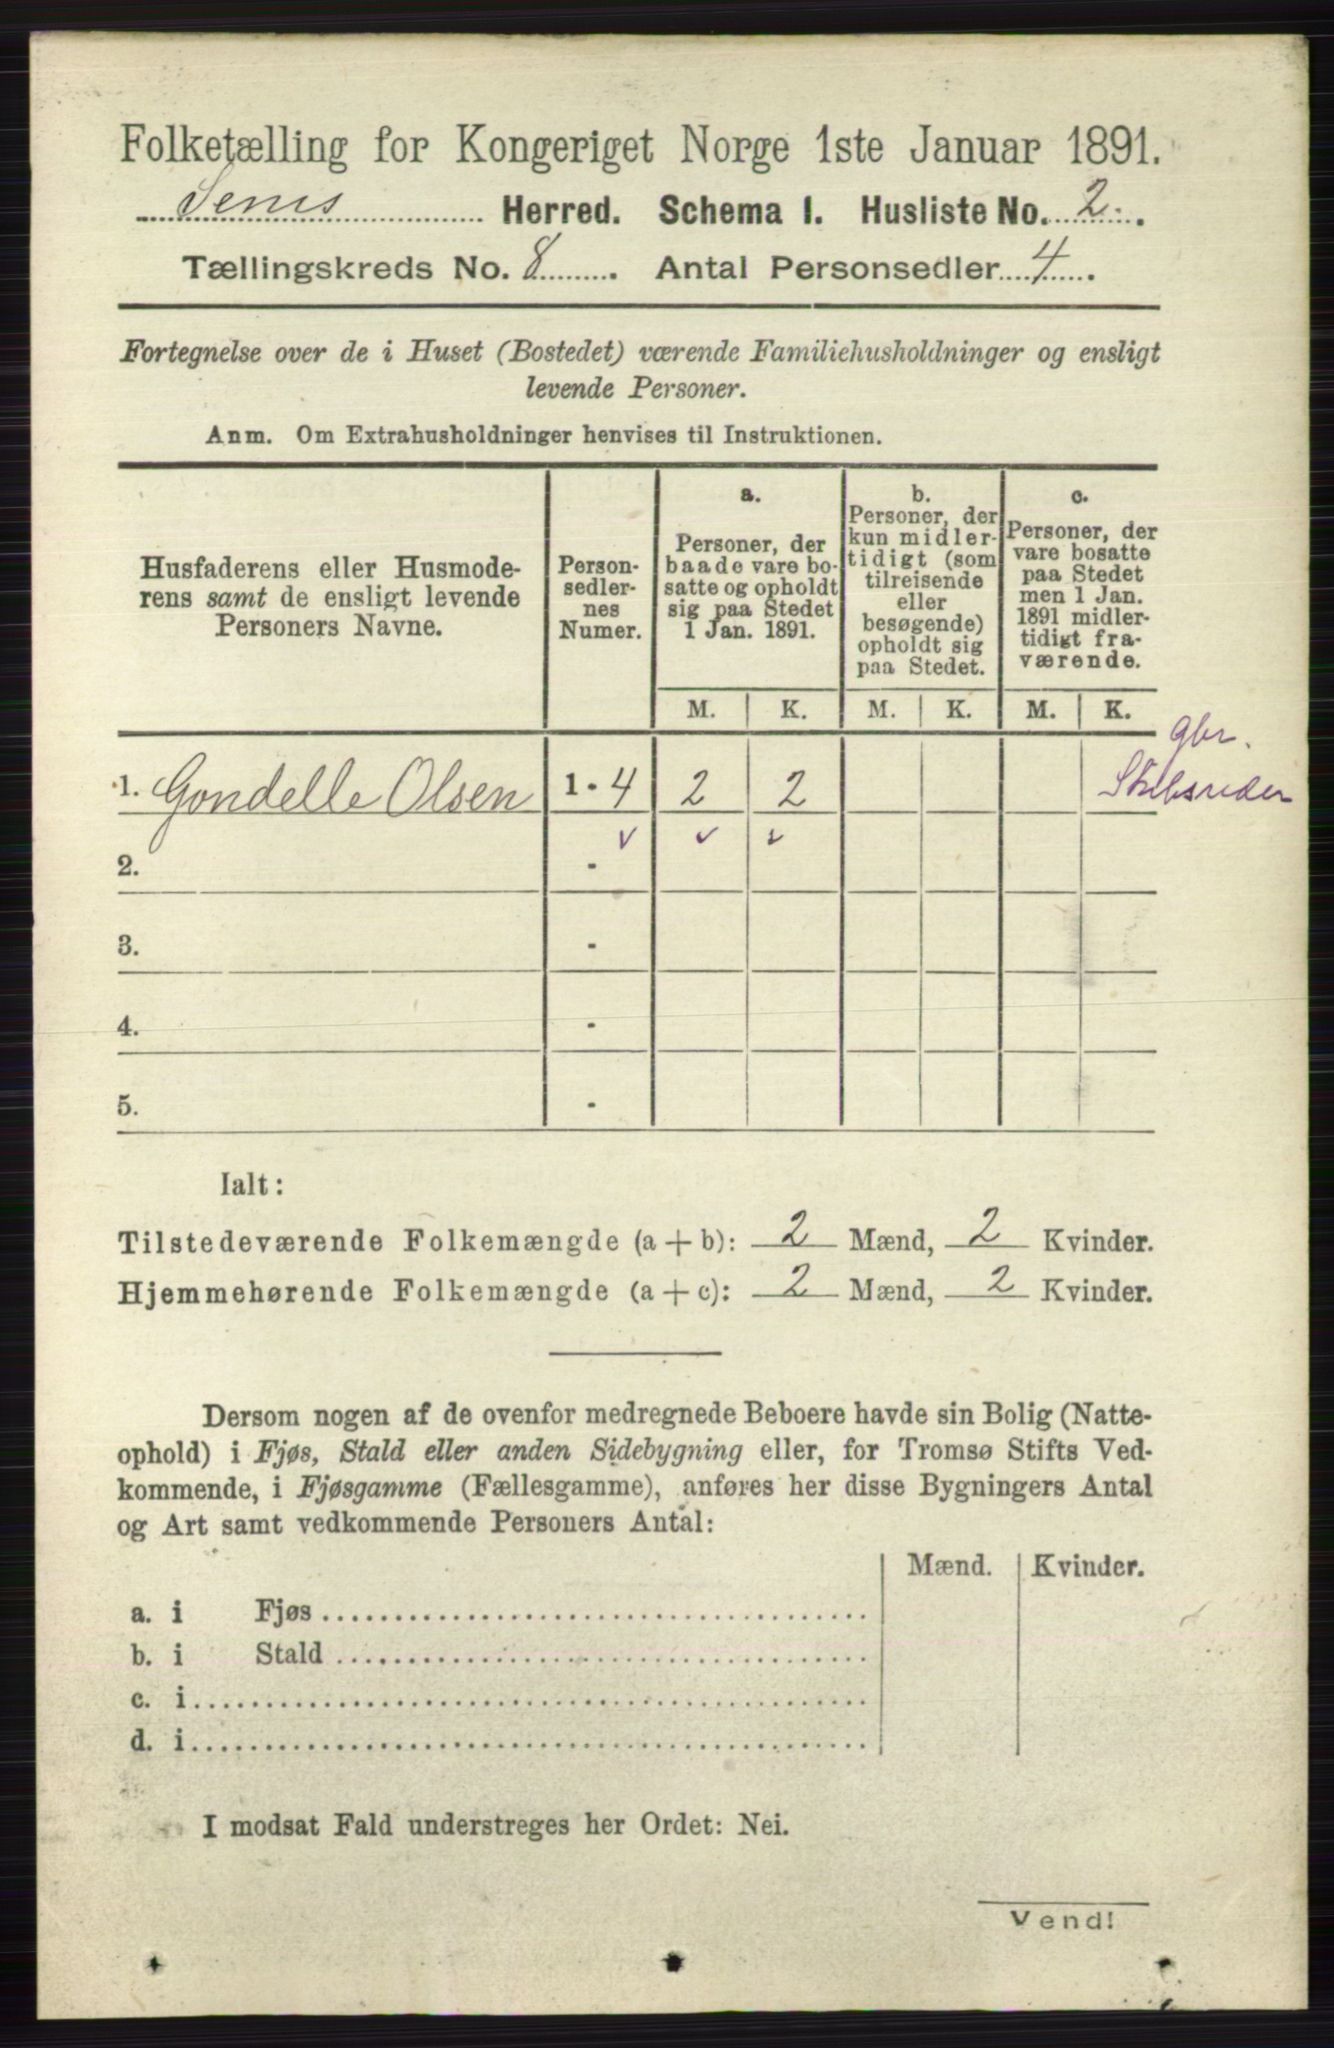 Folketælling for Kongeriget Norge 1ste Januar 1891.
Sems Herred. Schema I. Husliste No. 2.
Tællingskreds No. 8. Antal Personsedler 4.
Fortegnelse over de i Huset (Bostedet) værende Familiehusholdninger og ensligt
levende Personer.
Anm. Om Extrahusholdninger henvises til Instruktionen.
Husfaderens eller Husmode-
rens samt de ensligt levende
Personers Navne.
Person-
sedler-
nes
Numer.
a.
Personer, der
baade vare bo-
satte og opholdt
sig paa Stedet
1 Jan. 1891.
b.
Personer, der
kun midler-
tidigt (som
tilreisende
eller
besøgende)
opholdt sig
paa Stedet.
c.
Personer, der
vare bosatte
paa Stedet
men 1 Jan.
1891 midler-
tidigt fra-
værende.
M. K. M. K. M. K.
gbr.
1. Gondelle Olsen 1 - 4 2 2 Skibsreder
2. -
3. -
4. -
5. -
Ialt:
Tilstedeværende Folkemængde (a + b): 2 Mænd, 2 Kvinder.
Hjemmehørende Folkemængde (a + c): 2 Mænd, 2 Kvinder.
Dersom nogen af de ovenfor medregnede Beboere havde sin Bolig (Natte-
ophold) i Fjøs, Stald eller anden Sidebygning eller, for Tromsø Stifts Ved-
kommende, i Fjøsgamme (Fællesgamme), anføres her disse Bygningers Antal
og Art samt vedkommende Personers Antal:
Mænd. Kvinder.
a. i Fjøs
b. i Stald
c. i
d. i
I modsat Fald understreges her Ordet: Nei.
Vend!